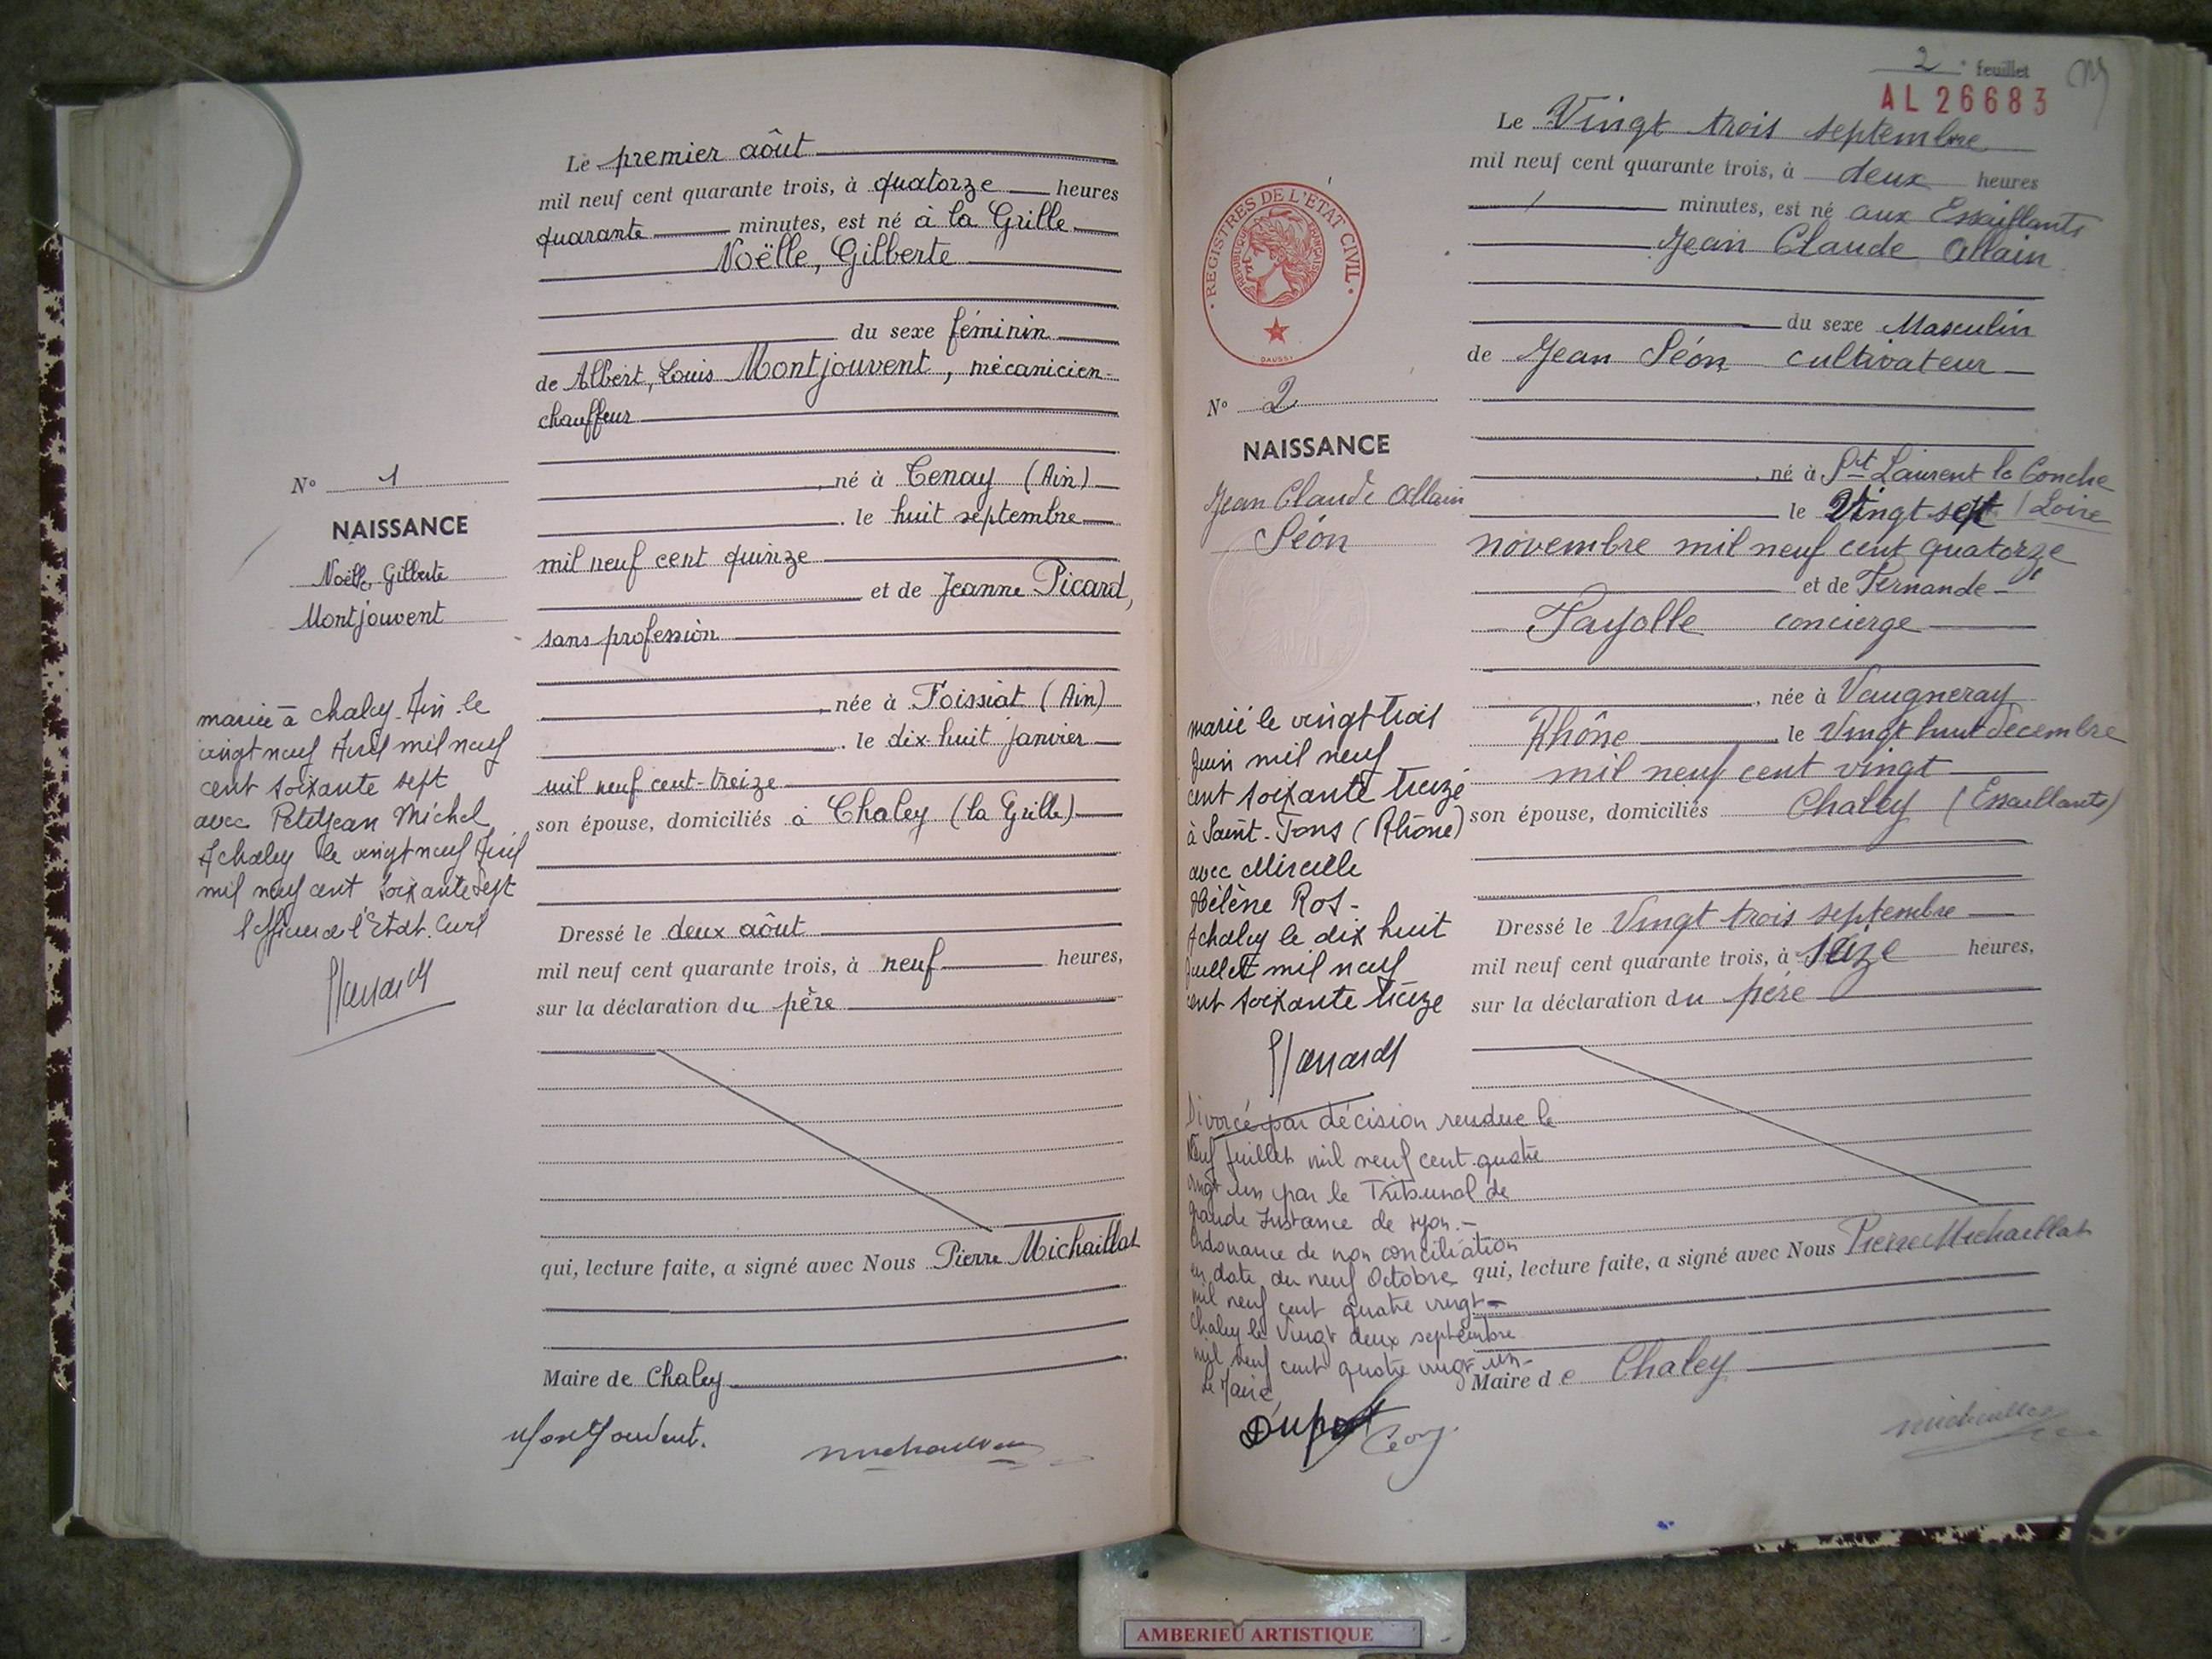 Le premier août
mil neuf cent quarante trois, à quatorze heures
quarante minutes, est né à la Grille
Noëlle, Gilberte
du sexe féminin
de Albert, Louis Montjouvent, mécanicien-
chauffeur
né à Tenay (Ain)
le huit septembre
mil neuf cent quinze
et de Jeanne Picard,
sans profession
née à Foissiat (Ain)
le dix-huit janvier
mil neuf cent-treize
son épouse, domiciliés à Chaley (la Grille)
Dressé le deux août
mil neuf cent quarante trois, à neuf heures,
sur la déclaration du père
qui, lecture faite, a signé avec Nous Pierre Michaillat
Maire de Chaley
Montjouvent.
N° 1
NAISSANCE
Noëlle, Gilberte
Montjouvent
mariée à chaley-Ain-le
vingt neuf Avril mil neuf
cent soixante sept
avec Petitjean Michel
A chaley le vingt neuf Avril
mil neuf cent soixante sept
l'officier de l'Etat-Civil
2e feuillet
AL 26683
Le Vingt trois septembre
mil neuf cent quarante trois, à deux heures
minutes, est né aux Essaillants
Jean Claude Allain
du sexe Masculin
de Jean Séon cultivateur
né à St Laurent la Conche
le Vingt sept / Loire
novembre mil neuf cent quatorze
et de Fernande
Fayolle concierge
née à Vaugneray
Rhône le Vingt huit décembre
mil neuf cent vingt
son épouse, domiciliés Chaley (Essaillants)
Dressé le Vingt trois septembre
mil neuf cent quarante trois, à seize heures,
sur la déclaration du père
qui, lecture faite, a signé avec Nous Pierre Michaillat
Maire de Chaley
REGISTRES DE L'ÉTAT CIVIL
RÉPUBLIQUE FRANÇAISE
DAUSSI
N° 2
NAISSANCE
Jean Claude Allain
Séon
marié le vingt trois
Juin mil neuf
cent soixante treize
à Saint-Fons (Rhône)
avec Mireille
Hélène Ros-
A chaley le dix huit
Juillet mil neuf
cent soixante treize
Divorcé par décision rendue le
Neuf Juillet mil neuf cent quatre
vingt un par le Tribunal de
Grande Instance de Lyon.-
Ordonnance de non conciliation
en date du neuf Octobre
mil neuf cent quatre vingt-
Chaley le Vingt deux septembre
mil neuf cent quatre vingt un-
Le Maire
AMBERIEU ARTISTIQUE